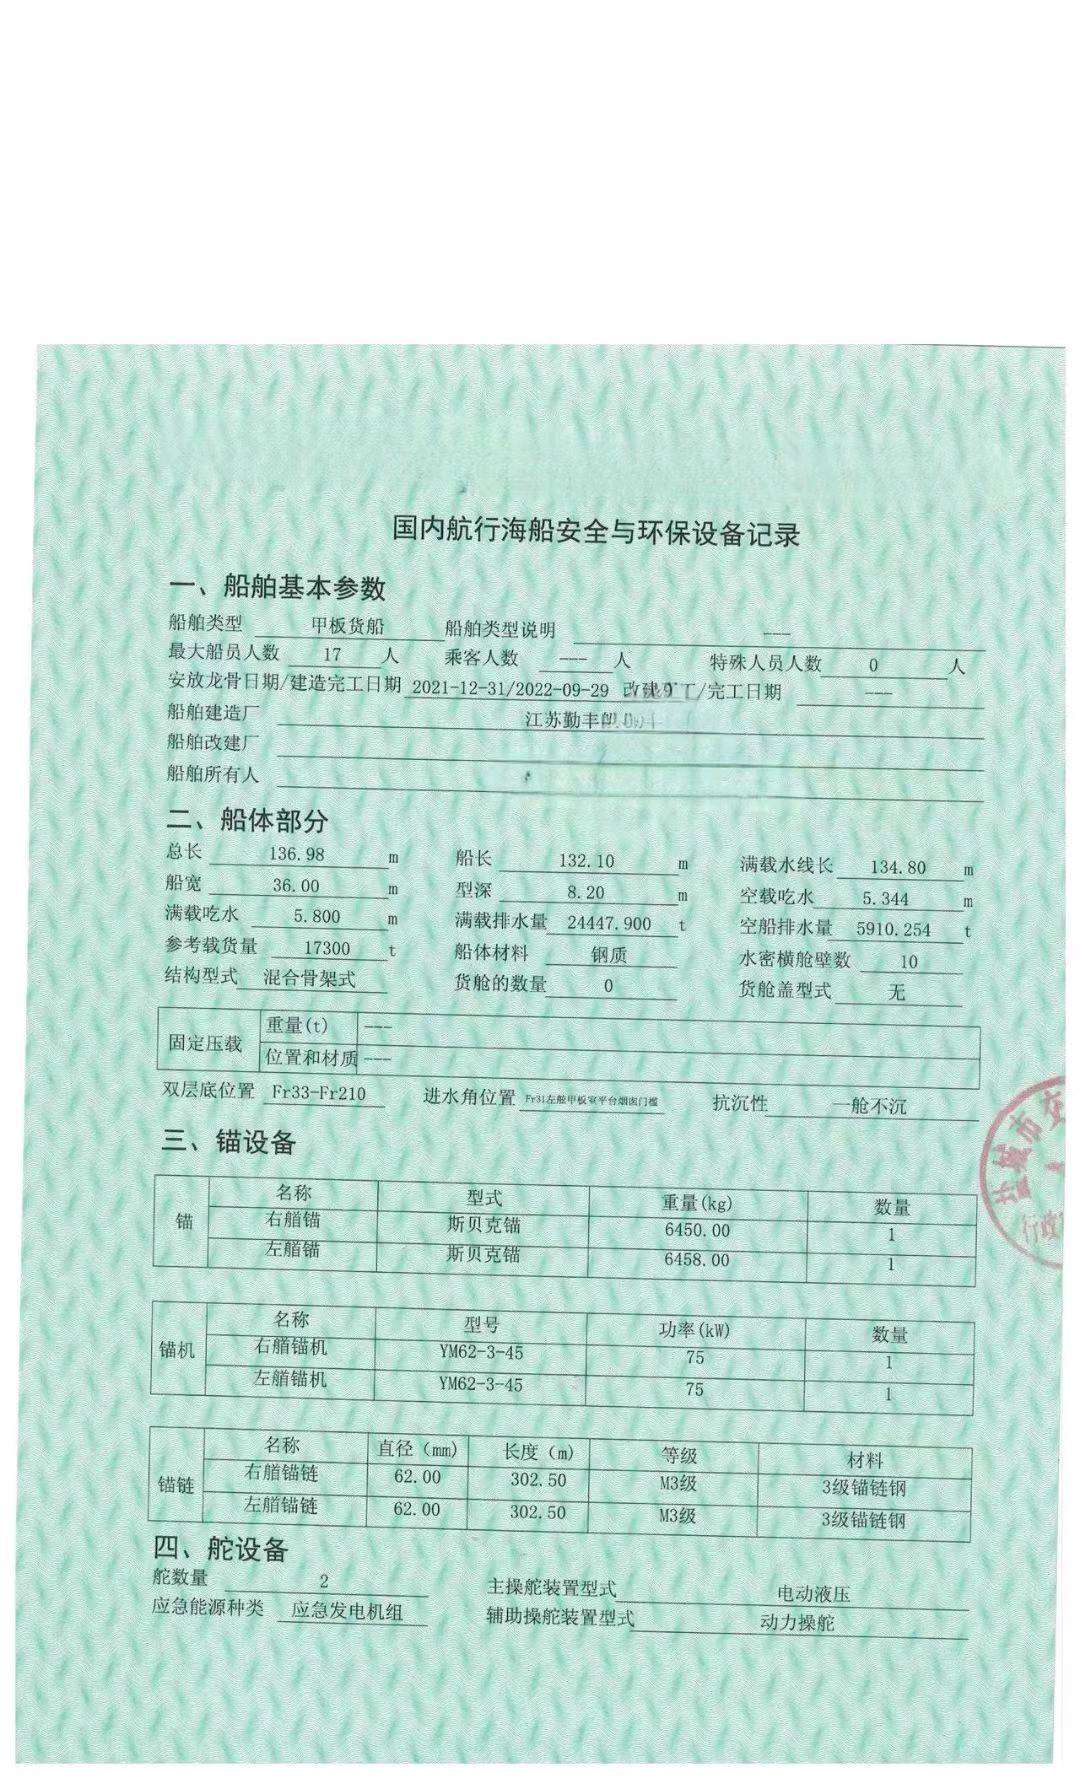 国内航行海船安全与环保设备记录
一、船舶基本参数
船舶类型 甲板货船 船舶类型说明 ---
最大船员人数 17 人 乘客人数 --- 人 特殊人员人数 0 人
安放龙骨日期/建造完工日期 2021-12-31/2022-09-29 改建 工/完工日期 ---
船舶建造厂 江苏勤丰
船舶改建厂
船舶所有人
二、船体部分
总长 136.98 m 船长 132.10 m 满载水线长 134.80 m
船宽 36.00 m 型深 8.20 m 空载吃水 5.344 m
满载吃水 5.800 m 满载排水量 24447.900 t 空船排水量 5910.254 t
参考载货量 17300 t 船体材料 钢质 水密横舱壁数 10
结构型式 混合骨架式 货舱的数量 0 货舱盖型式 无
固定压载 重量(t) ---
位置和材质 ---
双层底位置 Fr33-Fr210 进水角位置 Fr31左舷甲板室平台烟囱门槛 抗沉性 一舱不沉
三、锚设备
锚 名称 型式 重量(kg) 数量
右艏锚 斯贝克锚 6450.00 1
左艏锚 斯贝克锚 6458.00 1
锚机 名称 型号 功率(kW) 数量
右艏锚机 YM62-3-45 75 1
左艏锚机 YM62-3-45 75 1
锚链 名称 直径（mm） 长度（m） 等级 材料
右艏锚链 62.00 302.50 M3级 3级锚链钢
左艏锚链 62.00 302.50 M3级 3级锚链钢
四、舵设备
舵数量 2 主操舵装置型式 电动液压
应急能源种类 应急发电机组 辅助操舵装置型式 动力操舵
盐城市交
行政